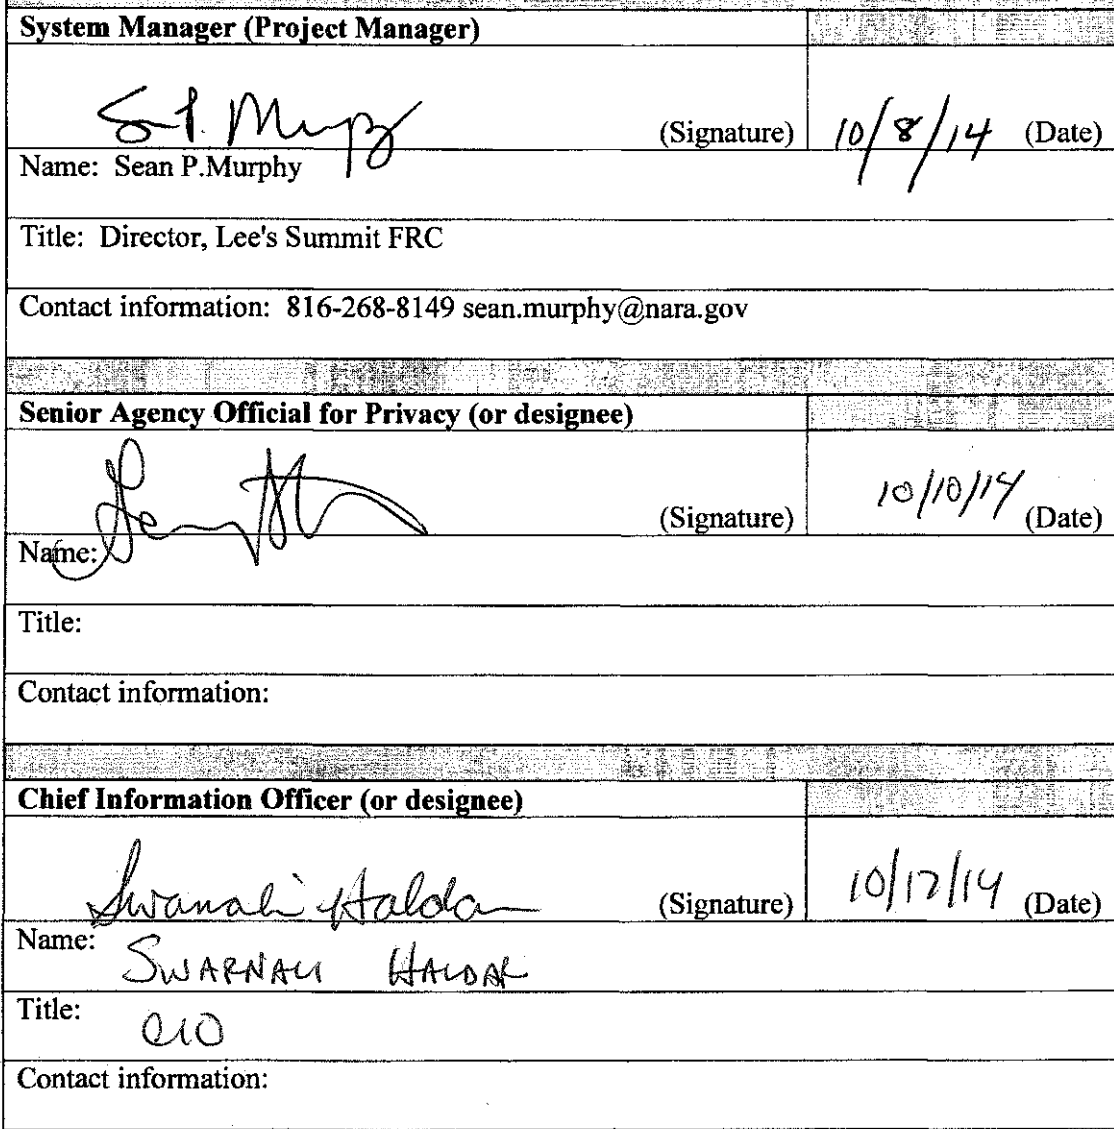 System Manager (Project Manager)
(Signature) 10/8/14 (Date)
Name: Sean P.Murphy
Title: Director, Lee's Summit FRC
Contact information: 816-268-8149 sean.murphy@nara.gov
Senior Agency Official for Privacy (or designee)
(Signature) 10/10/14 (Date)
Name:
Title:
Contact information:
Chief Information Officer (or designee)
Swarnali Haldar (Signature) 10/17/14 (Date)
Name: SWARNALI HALDAR
Title: CIO
Contact information: